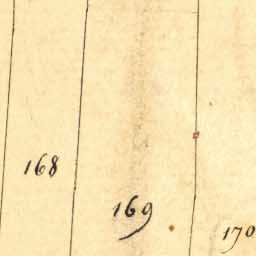 168
169
170